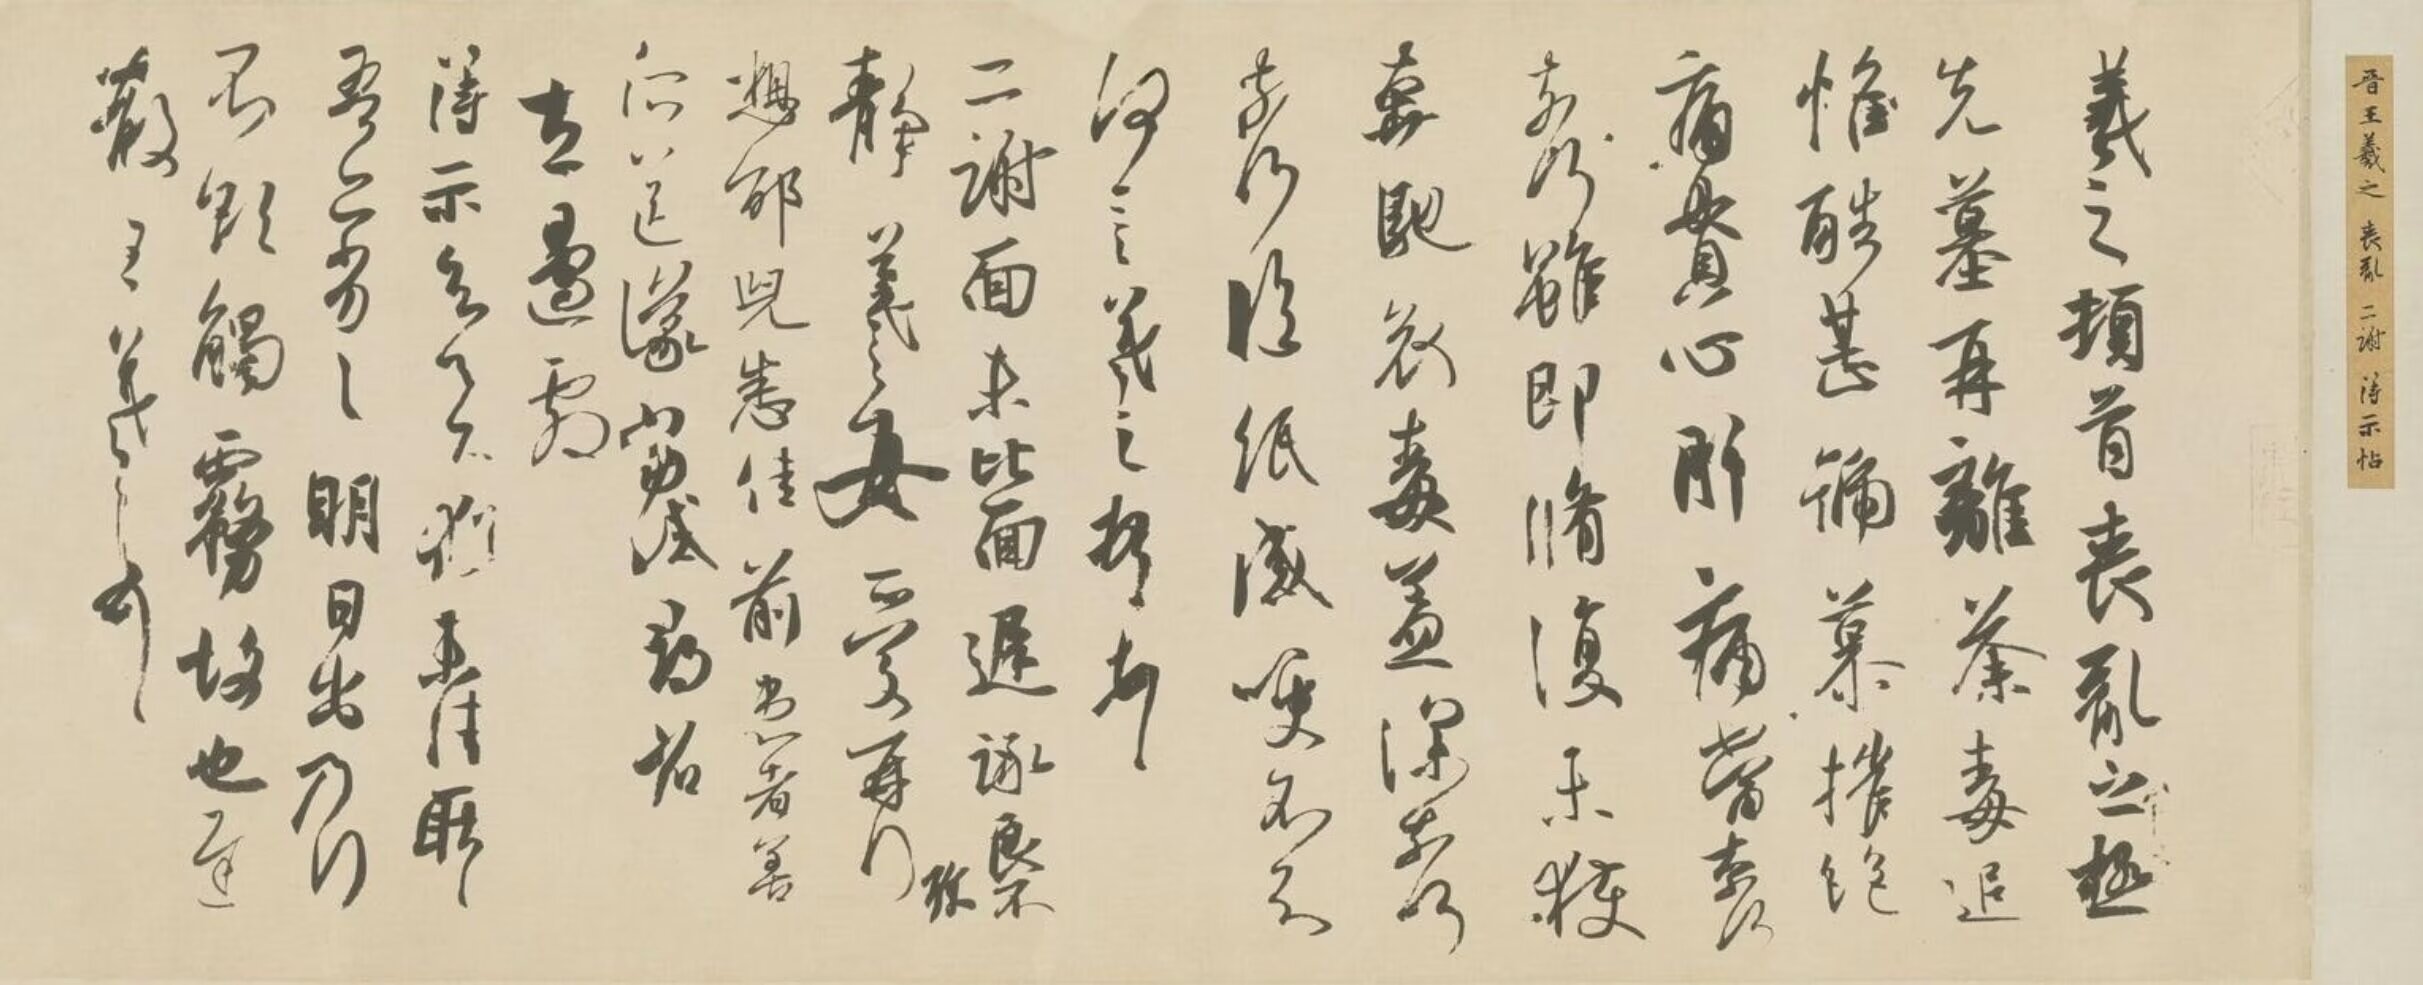 晋王羲之 喪亂 二謝 得示帖
羲之頓首喪亂之極
先墓再離荼毒追
惟酷甚號慕摧絕
痛貫心肝痛當奈何
奈何雖即脩復未獲
奔馳哀毒益深奈何
奈何臨紙感哽不知
何言羲之頓首頓首
二謝面未比面遲詠良不
珎
靜羲之女愛再拜
想邵兒悉佳前患者善
所送議當試尋省
左邊劇
得示知足下猶未佳耿耿
吾亦劣劣明日出乃行
不欲觸霧故也遲
散王羲之頓首